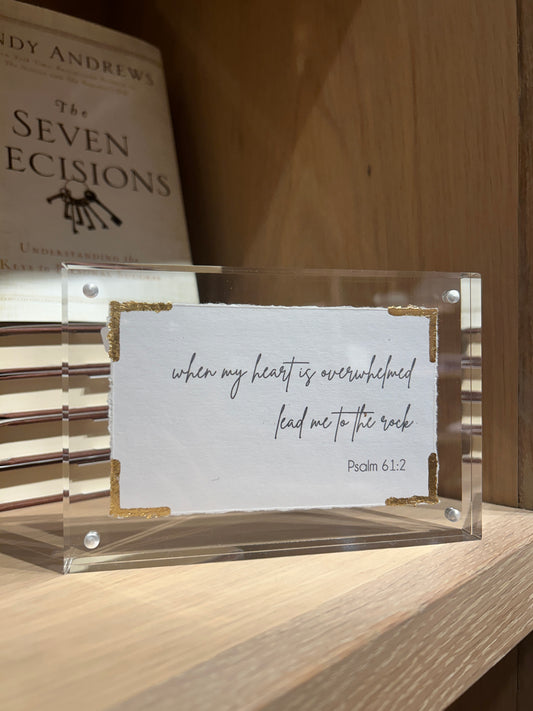 NDY ANDREWS
The
SEVEN
ECISIONS
UNDERSTANDING the
KEYS to
when my heart is overwhelmed
lead me to the rock
Psalm 61:2